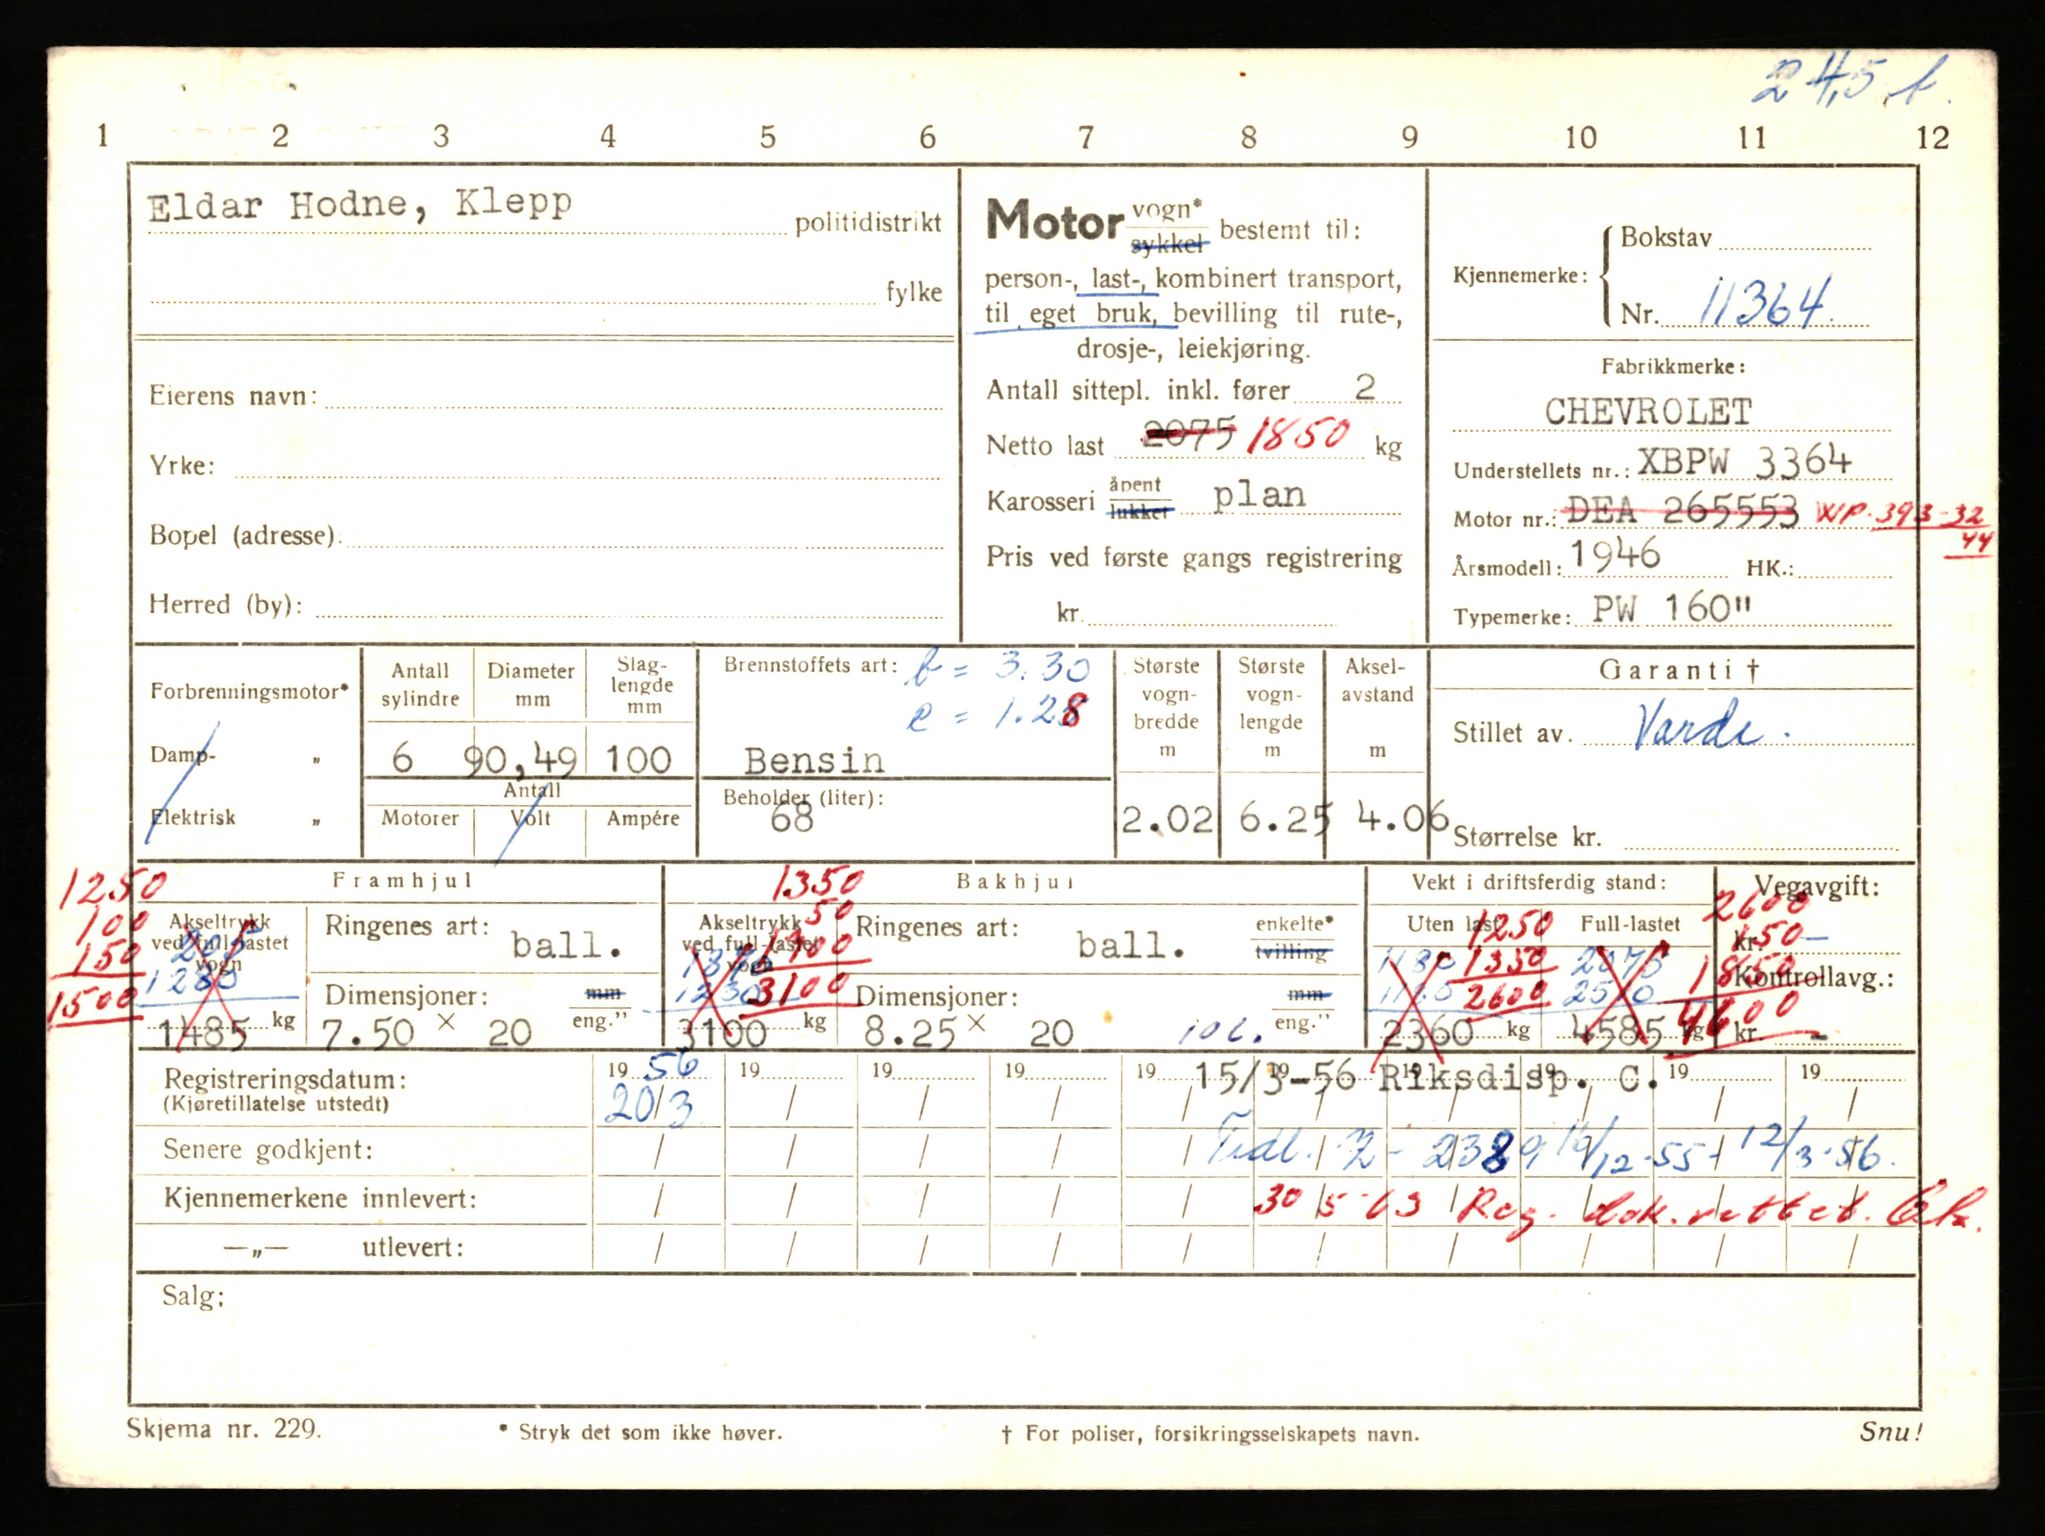 24,5
1 2 3 4 5 6 7 8 9 10 11 12
Eldar Hodne, Klepp politidistrikt
fylke
Eierens navn:
Yrke:
Bopel (adresse):
Herred (by):
Motor vogn* sykkel bestemt til:
person-, last-, kombinert transport,
til eget bruk, bevilling til rute-,
drosje-, leiekjøring.
Antall sittepl. inkl. fører 2
Netto last 2075 1850 kg
Karosseri åpent lukket plan
Pris ved første gangs registrering
kr.
Kjennemerke: Bokstav
Nr. 11364
Fabrikkmerke:
CHEVROLET
Understellets nr.: XBPW 3364
Motor nr.: DEA 265553 WP. 393-32
44
Årsmodell: 1946 HK.:
Typemerke: PW 160"
Forbrenningsmotor*
Damp- "
Elektrisk "
Antall sylindre
6
Diameter mm
90,49
Slag-lengde mm
100
Antall
Motorer Volt Ampére
Brennstoffets art: b = 3.30
e = 1.28
Bensin
Beholder (liter):
68
Største vogn-bredde m
2.02
Største vogn-lengde m
6.25
Aksel-avstand m
4.06
Garanti †
Stillet av. Varde.
Størrelse kr.
Framhjul
1250
100
150
1500
Akseltrykk
ved full-lastet
vogn
205
1280
1485 kg
Ringenes art: ball.
Dimensjoner: mm eng."
7.50 × 20
Bakhjul
1350
50
1700
3100
Akseltrykk
ved full-lastet
vogn
3100 kg
Ringenes art: ball.
enkelte* tvilling
Dimensjoner: mm eng."
8.25 × 20
Vekt i driftsferdig stand:
Uten last
1250
1350
2600
1180
2360 kg
Full-lastet
2075
2510
4585 kg
Vegavgift:
2600
kr. 150 –
1850
Kontrollavg.:
4600
kr. -
Registreringsdatum: 19 56 19 19 19 19 19 19 19 19 19
(Kjøretillatelse utstedt) 20/3
15/3-56 Riksdisp. C.
Senere godkjent:
Tidl. 12/3-56.
Kjennemerkene innlevert:
30/5-63 Reg. dok. rettet.
—„— utlevert:
Salg:
Skjema nr. 229. * Stryk det som ikke høver. † For poliser, forsikringsselskapets navn. Snu!